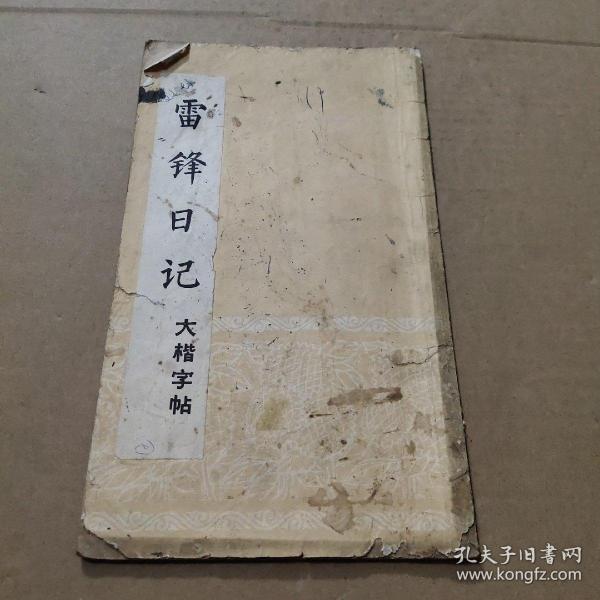 雷锋日记
大楷字帖
孔夫子旧书网
www.kongfz.com